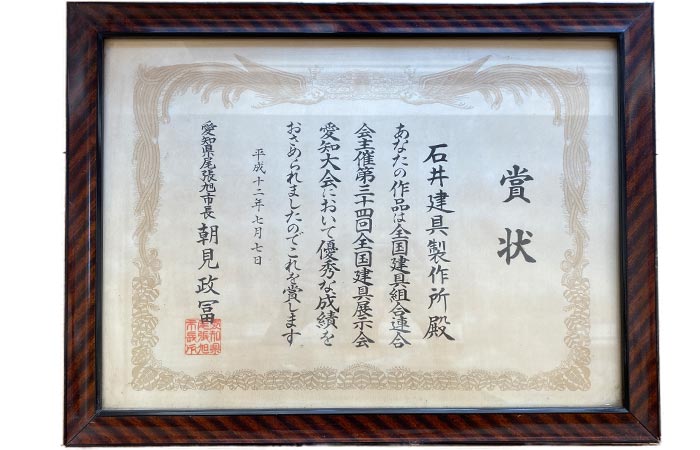 賞状
石井建具製作所殿
あなたの作品は全国建具組合連合
会主催第三十四回全国建具展示会
愛知大会において優秀な成績を
おさめられましたのでこれを賞します
平成十二年七月七日
愛知県尾張旭市長 朝見政冨